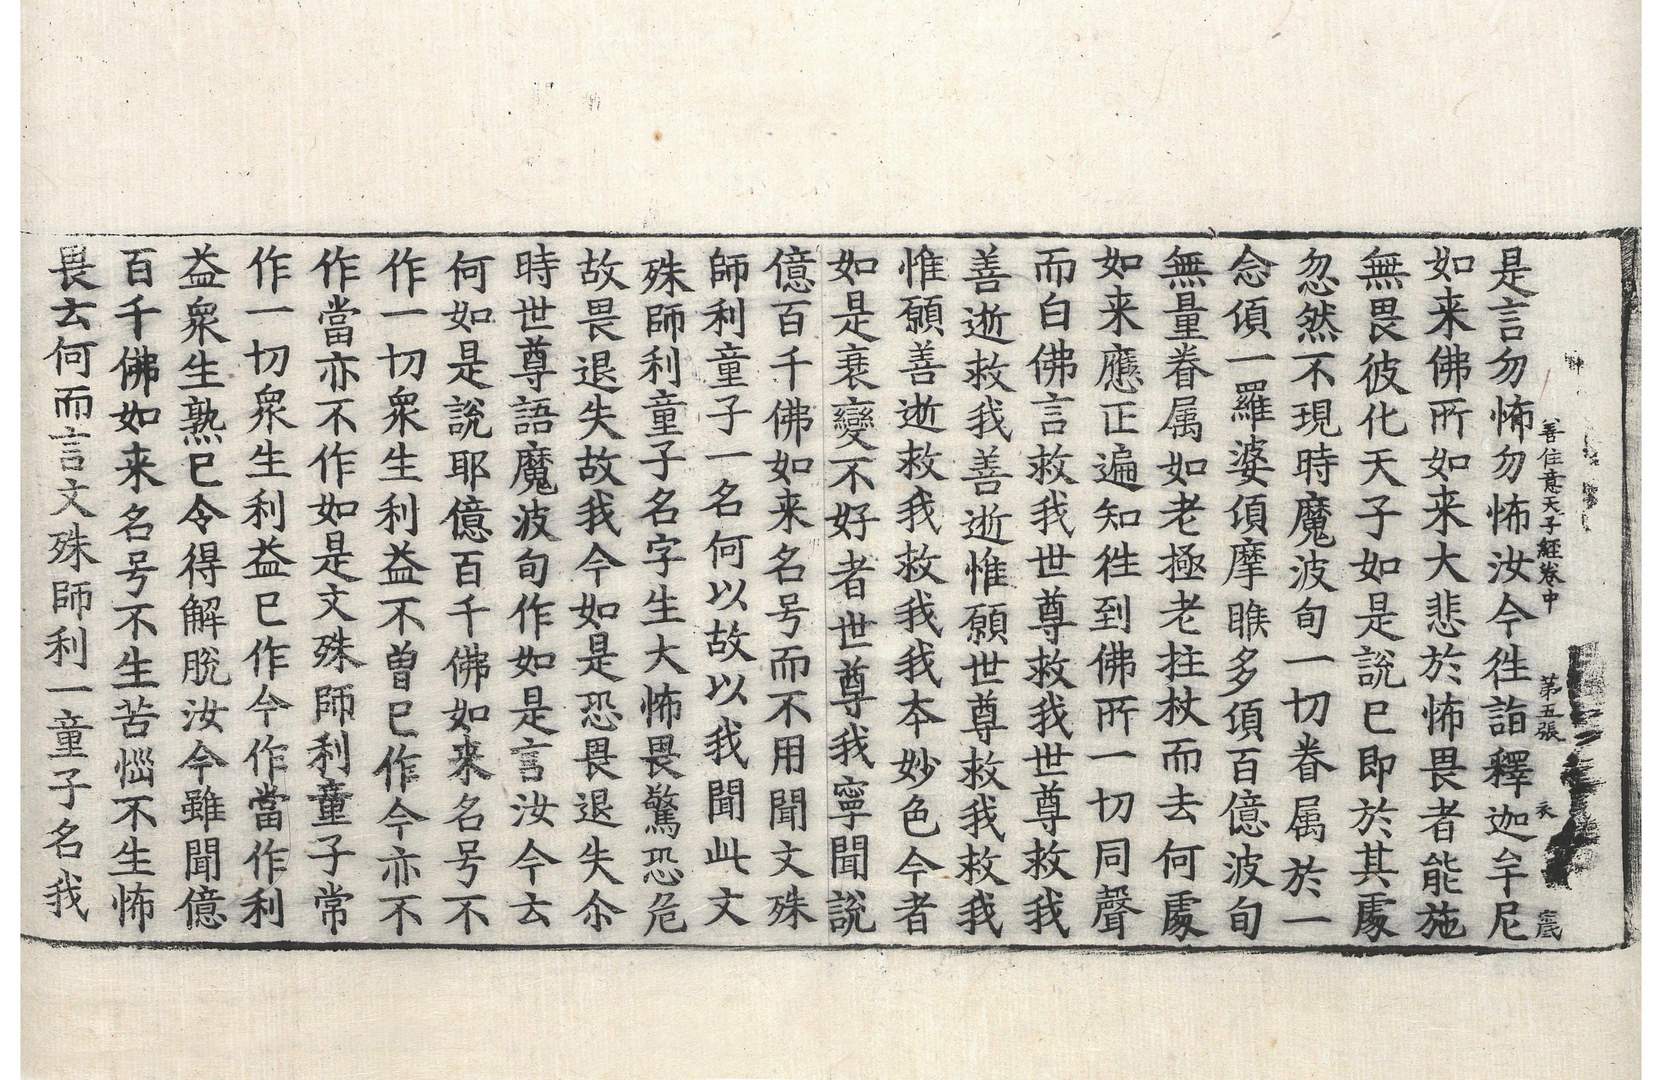 善住意天子經卷中 第五張 衣 底
是言勿怖勿怖汝今徃詣釋迦牟尼
如来佛所如来大悲於怖畏者能施
無畏彼化天子如是說已即於其處
忽然不現時魔波旬一切眷属於一
念傾一羅婆傾摩睺多傾百億波旬
無量眷属如老極老拄杖而去何處
如来應正遍知徃到佛所一切同聲
而白佛言救我世尊救我世尊救我
善逝救我善逝惟願世尊救我救我
惟願善逝救我救我我夲妙色今者
如是衰變不好者世尊我寧聞說
億百千佛如来名号而不用聞文殊
師利童子一名何以故以我聞此文
殊師利童子名字生大怖畏驚恐危
故畏退失故我今如是恐畏退失尒
時世尊語魔波旬作如是言汝今云
何如是說耶億百千佛如来名号不
作一切衆生利益不曾已作今亦不
作當亦不作如是文殊師利童子常
作一切衆生利益已作今作當作利
益衆生熟已令得解脫汝今雖聞億
百千佛如来名号不生苦惱不生怖
畏云何而言文殊師利一童子名我